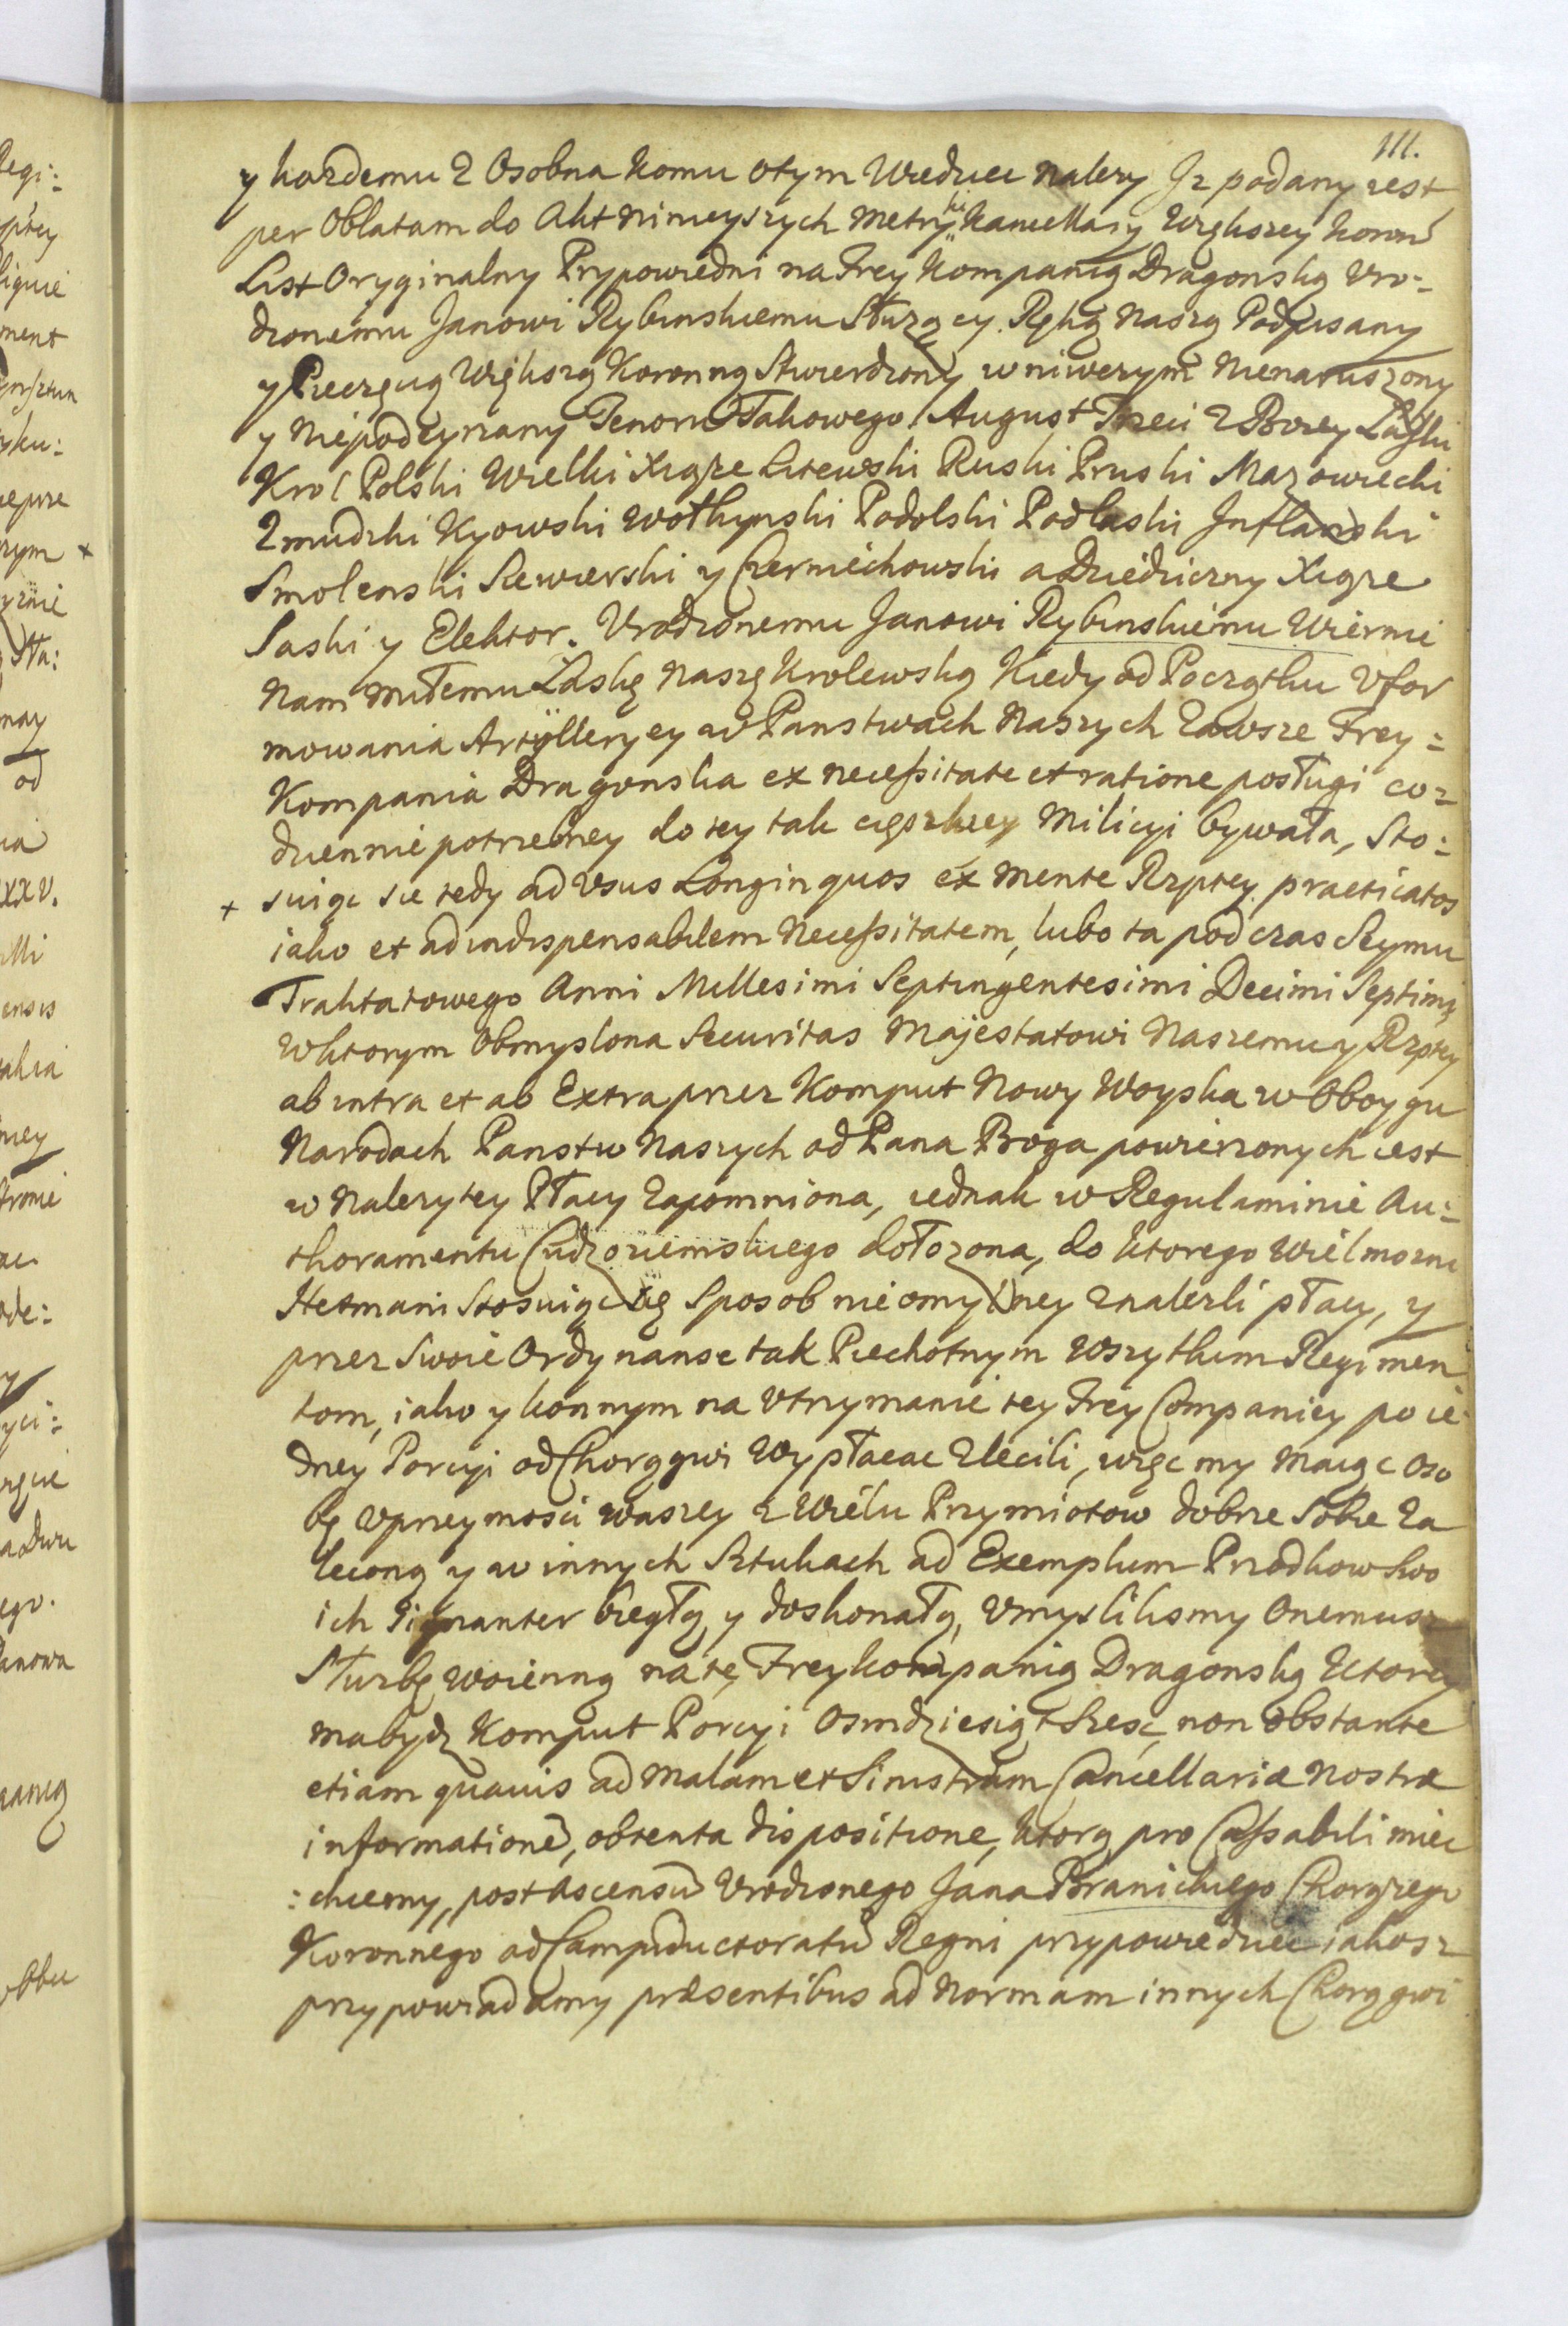 111.
y kazdemu z Osobna komu otym Wiedziec nalezy Jz podany iest
per Oblatam do Akt ninieyszych Metryki Kancellary Większey Koron
List Oryginalny Prypowiedni na Frey Kompanią Dragonską Vro-
dzonemu Janowi Rybinskiemu Słuzący. Ręką Naszą Podpisany
y Pieczęcią Większą Koronną Stwierdzony w niwczym Nienaruszony
y Niepodeyrzany Tenoru Takowego. August Trzeci z Bozey Łaski
Krol Polski Wielki Xiąze Litewski Ruski Pruski Mazowiecki
Zmudzki Kyowski Wołhynski Podolski Podlaski Jnflandski
Smolenski Siewierski y Czerniechowski a Dziedziczny Xiąze
Saski y Elektor. Vrodzonemu Janowi Rybinskiemu Wiernie
Nam miłemu Łaskę Naszę Krolewską Kiedy od Początku Vfor
mowania Artylleryey w Panstwach Naszych Zawsze Frey=
Kompania Dragonska ex necessitate et ratione posługi co=
dziennie potrzebney do tey tak cięszkiey Milicyi bywała, Sto=
+ suiąc sie tedy ad Vsus Longinquos ex Mente Rzptey practicatos
iako et ad indispensabilem Necessitatem, lubo ta podczas Seymu
Traktatowego Anni Millesimi Septingentesimi Decimi Septimi
Wktorym Obmyslona Securitas Majestatowi Naszemu y Rzptey
ab intra et ab Extra przez Komput Nowy Woyska w Oboygu
Narodach Panstw Naszych od Pana Boga powierzonych iest
w Nalezytey Płacy Zapomniona, iednak w Regulaminie Au=
thoramentu Cudzoziemskiego dołozona, do ktorego Wielmozni
Hetmani Stosuiąc się Sposob nieomylney znalezli płacy, y
przez Swoie Ordynanse tak Piechotnym Wszytkim Regimen
tom, iako y konnym na Vtrzymanie tey Frey Companiey po ie
dney Porcyi od Chorągwi Wypłacac Zlecili, więc my Maiąc Oso
bę Vprzeymosci Waszey z Wielu Przymiotow dobrze Sobie Za
leconą y w innych Sztukach ad Exemplum Przodkow Swo
ich Signanter biegłą, y doskonałą, Vmyslilismy Onemusz
Słuzbę Woienną na tę Freykompanią Dragonską Ktorey
ma bydz Komput Porcyi Osmdziesiąt Szesc, non obstante
etiam quavis ad Malam et Sinistram Cancellariæ Nostræ
informatione, obtenta dispositione, ktorą pro Cassabili miec
:chcemy, post Ascensu Vrodzonego Jana Branickiego Chorązego
Koronnego ad Campiductoratu Regni przypowiedziec iakosz
przypowiadamy præsentibus ad Normam innych Chorągwi